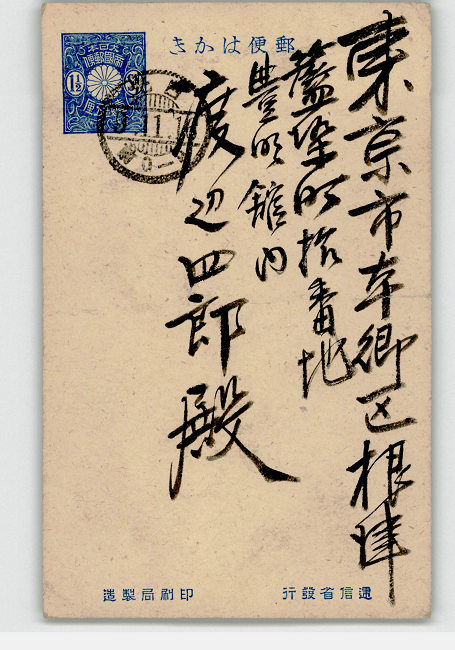 郵便はかき
大日本
帝國郵便
1½
東京市本郷区根津
藍染町拾番地
豊明館内
渡辺四郎殿
逓信省發行
印刷局製造